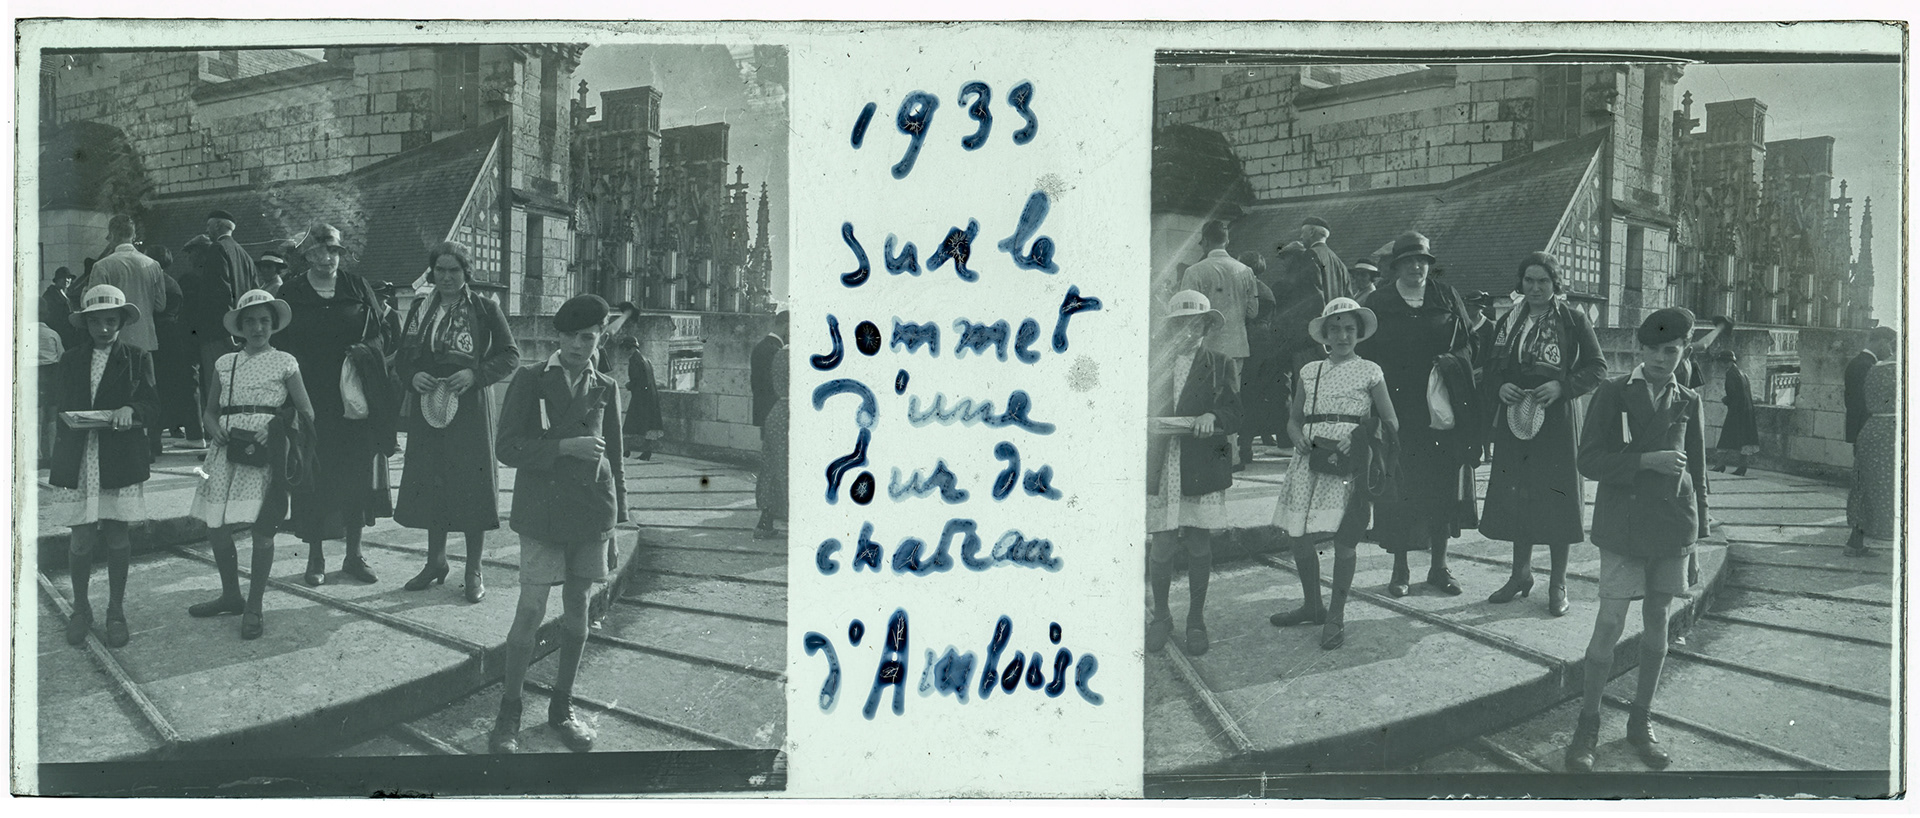 1933
sur le
sommet
d'une
tour du
chateau
d'Amboise